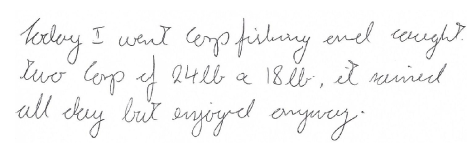 Today I went Carp fishing and caught.
two Carp of 24lb a 18lb, it rained
all day but enjoyd anyway.